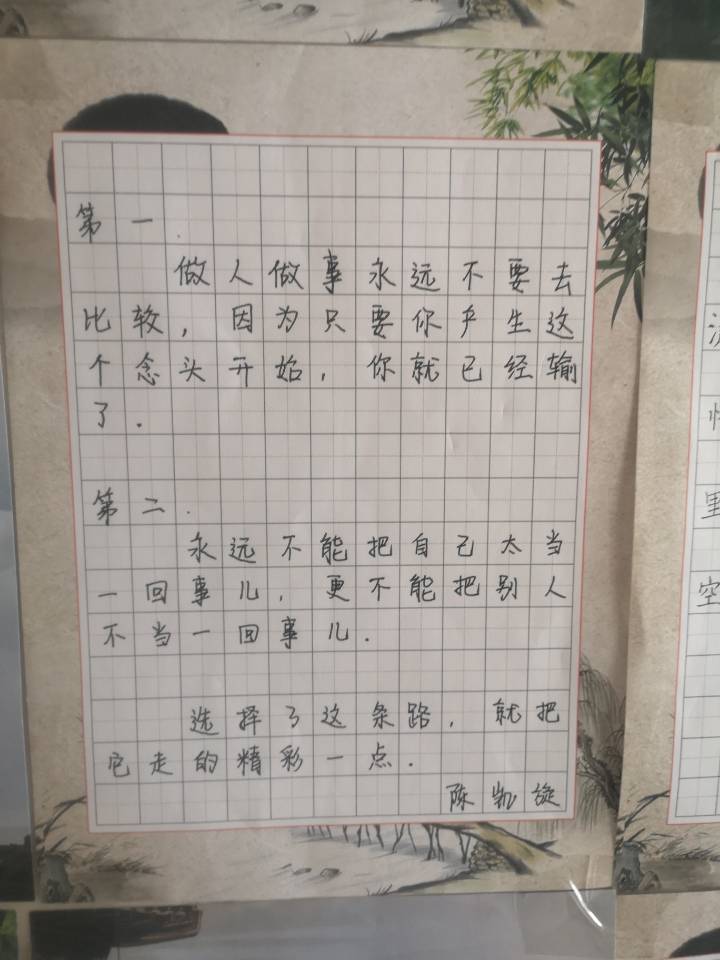 第一.
做人做事永远不要去
比较,因为只要你乎生这
个念头开始,你就已经输
了.
第二.
永远不能把自己太当
一回事儿,更不能把别人
不当一回事儿.
选择了这条路,就把
它走的精彩一点.
陈凯旋
里
空